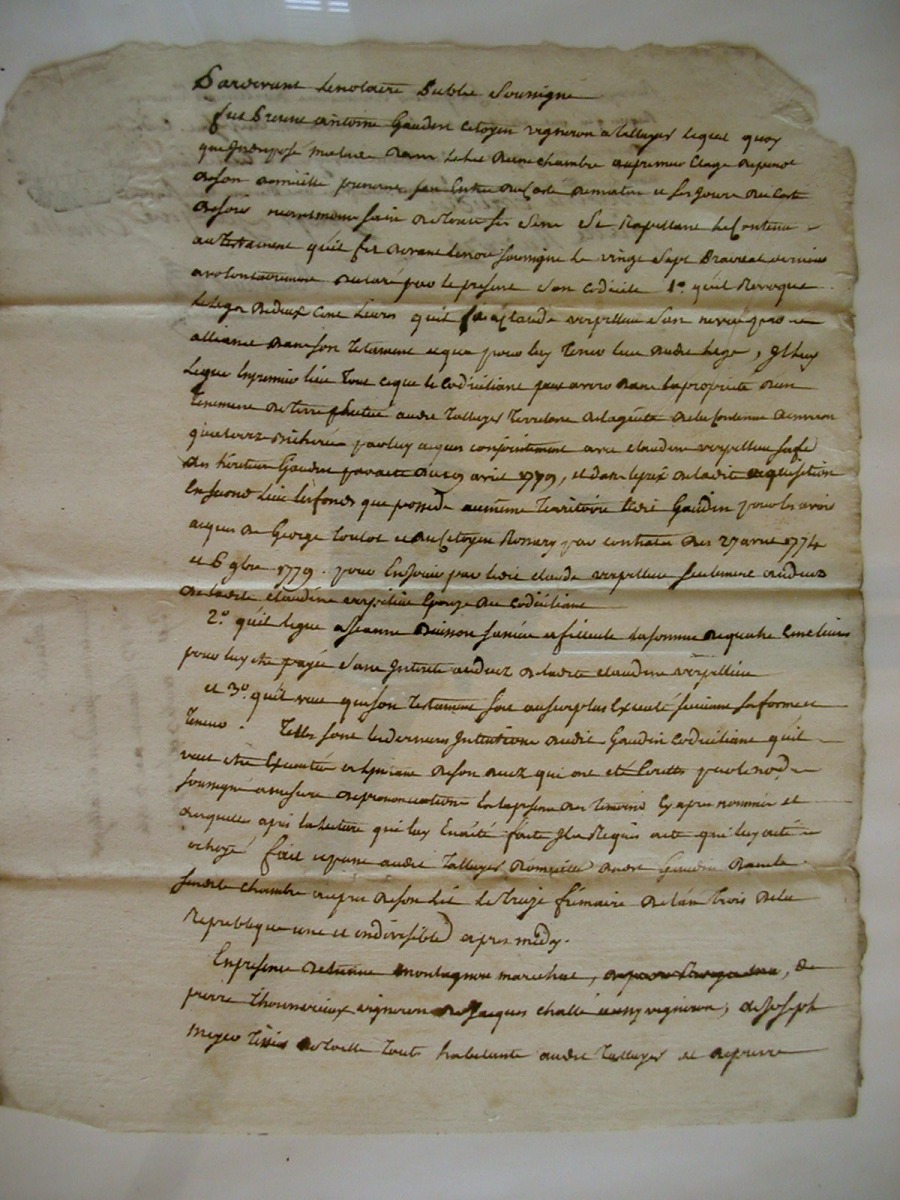 Pardevant le notaire Public soussigné
fut Antoine Gaudin Citoyen vigneron a Talluyers lequel quoy
que Indisposé malade dans le lit d'une chambre au premier Etage
de son domicille prenant son Entrée du Costé de matin et ses jours du Costé
de soir neanmoins sain de tous ses sens Se Rapellant le Contenu
au Testament qu'il fit devant le notaire soussigné le vingt sept Prairial dernier
a volontairement declaré pour le present son codicile 1º qu'il Revoque
le legs de deux Cent Livres qu'il fit a Claude verpillieu son neveu
alliance dans son Testament et que pour luy Tenir lieu dudit legs, Il luy
legue En premier lieu Tout ce que le Codiciliant peut avoir dans la propriété d'un
Tenement de Terre situé audit Talluyers Territoire de la Contenue d'environ
quatorze bicherées par luy acquis conjointement avec claudine verpillieu sa fe
des héritiers Gaudin par acte du avril 1779, et dans le prix de ladite acquisition
En second lieu les fonds que possede au même Territoire ledit Gaudin pour les avoir
acquis de George Toulot et du Citoyen par contrats des 27 avril 1774
et 6 9bre 1779. pour En jouir par ledit claude verpillieu seulement au deces
de ladite claudine verpillieu Epouse du codiciliant
2º qu'il legue a Jeanne Buisson sa niéce et filleule la somme de quatre Cent livres
pour luy etre payée sans Interets au decez de ladite claudine verpillieu
et 3º qu'il veut que son Testament soit au surplus Executé suivant sa forme et
Teneur. Telles sont les dernieres Intentions dudit Gaudin Codiciliant qu'il
veut etre Executées et qui ont été Ecrittes par le no.re
soussigné a mesure de prononciation En la presence des Temoins Cy apres nommés et
desquelles après la lecture qui luy En a été faite Il a Requis acte qui luy a été
octroyé fait et passé audit Talluyers Domicille dudit Gaudin dans la
susdite chambre au près de son Lit le treize frimaire de l'an Trois de la
Republique une et indivisible après midy.
En presence de Montagnon marechal, de
pierre Thonnerieux vigneron de Jacques challé aussy vigneron, de Joseph
Meyer Tissier de Toille Touts habitants audit Talluyers et de pierre